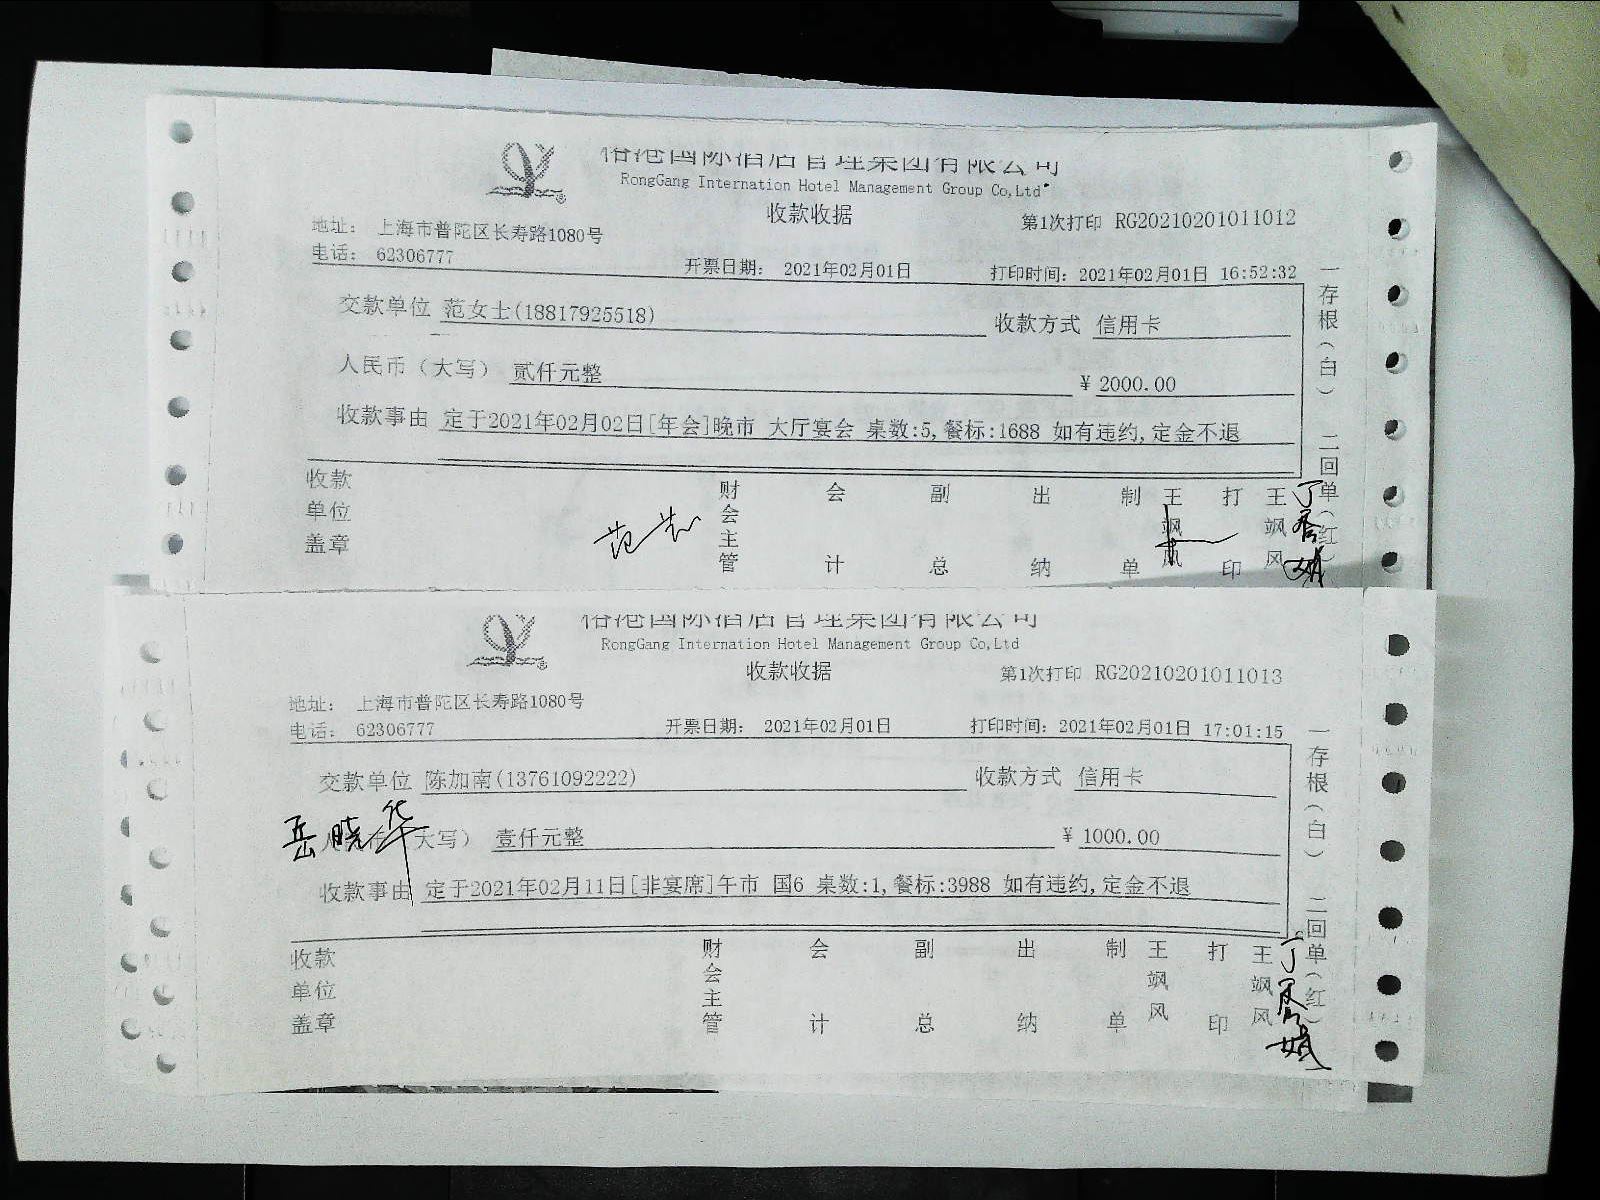 国际酒店管理集团有限公司
RongGang Internation Hotel Management Group Co,Ltd
收款收据
第1次打印 RG20210201011012
地址： 上海市普陀区长寿路1080号
电话： 62306777
开票日期： 2021年02月01日
打印时间：2021年02月01日 16:52:32
交款单位 范女士(18817925518)
收款方式 信用卡
人民币（大写） 贰仟元整
￥2000.00
收款事由 定于2021年02月02日[年会]晚市 大厅宴会 桌数:5,餐标:1688 如有违约,定金不退
收款单位盖章
财会主管
会计
副总
出纳
制单
王飒风
打印
王飒风
一存根（白） 二回单（红）
国际酒店管理集团有限公司
RongGang Internation Hotel Management Group Co,Ltd
收款收据
第1次打印 RG20210201011013
地址： 上海市普陀区长寿路1080号
电话： 62306777
开票日期： 2021年02月01日
打印时间：2021年02月01日 17:01:15
交款单位 陈加南(13761092222)
收款方式 信用卡
岳晓华
大写） 壹仟元整
￥1000.00
收款事由 定于2021年02月11日[非宴席]午市 国6 桌数:1,餐标:3988 如有违约,定金不退
收款单位盖章
财会主管
会计
副总
出纳
制单
王飒风
打印
王飒风
一存根（白） 二回单（红）